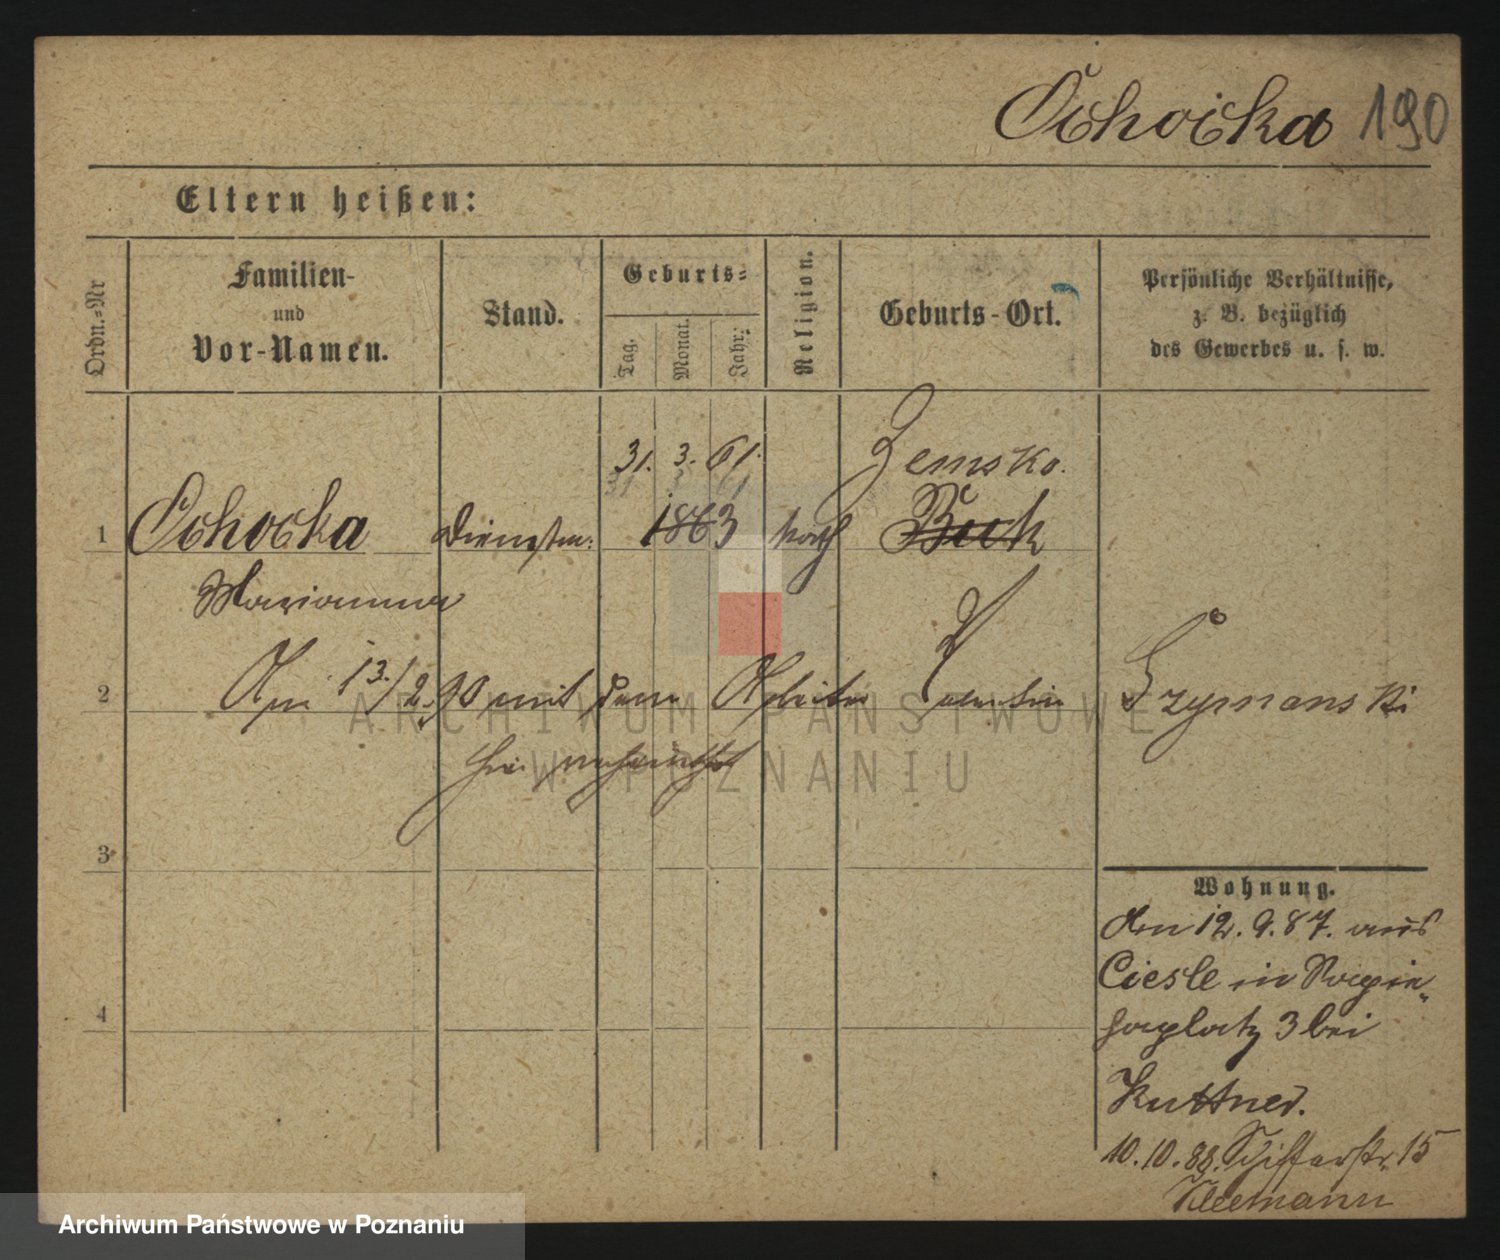 Ochocka 190
Eltern heißen:
Ordn.=Nr
Familien-
und
Vor-Namen.
Stand.
Geburts=
Tag.
Monat.
Jahr:
Religion.
Geburts-Ort.
Persönliche Verhältnisse,
z. B. bezüglich
des Gewerbes u. s. w.
31. 3. 61. Zemsko.
31 3 61
1 Ochocka Dienstm: 1863 kath Buck
Marianna
2 Am 13./2.90 mit dem Arbeiter Valentin Szymanski
hier verheirathet
3
Wohnung.
Am 12.9.87. aus
Ciesle in Sapie„
haplatz 3 bei
4
Kuttner.
10.10.88. Schifferstr. 15
Kleemann
ARCHIWUM PAŃSTWOWE
W POZNANIU
Archiwum Państwowe w Poznaniu